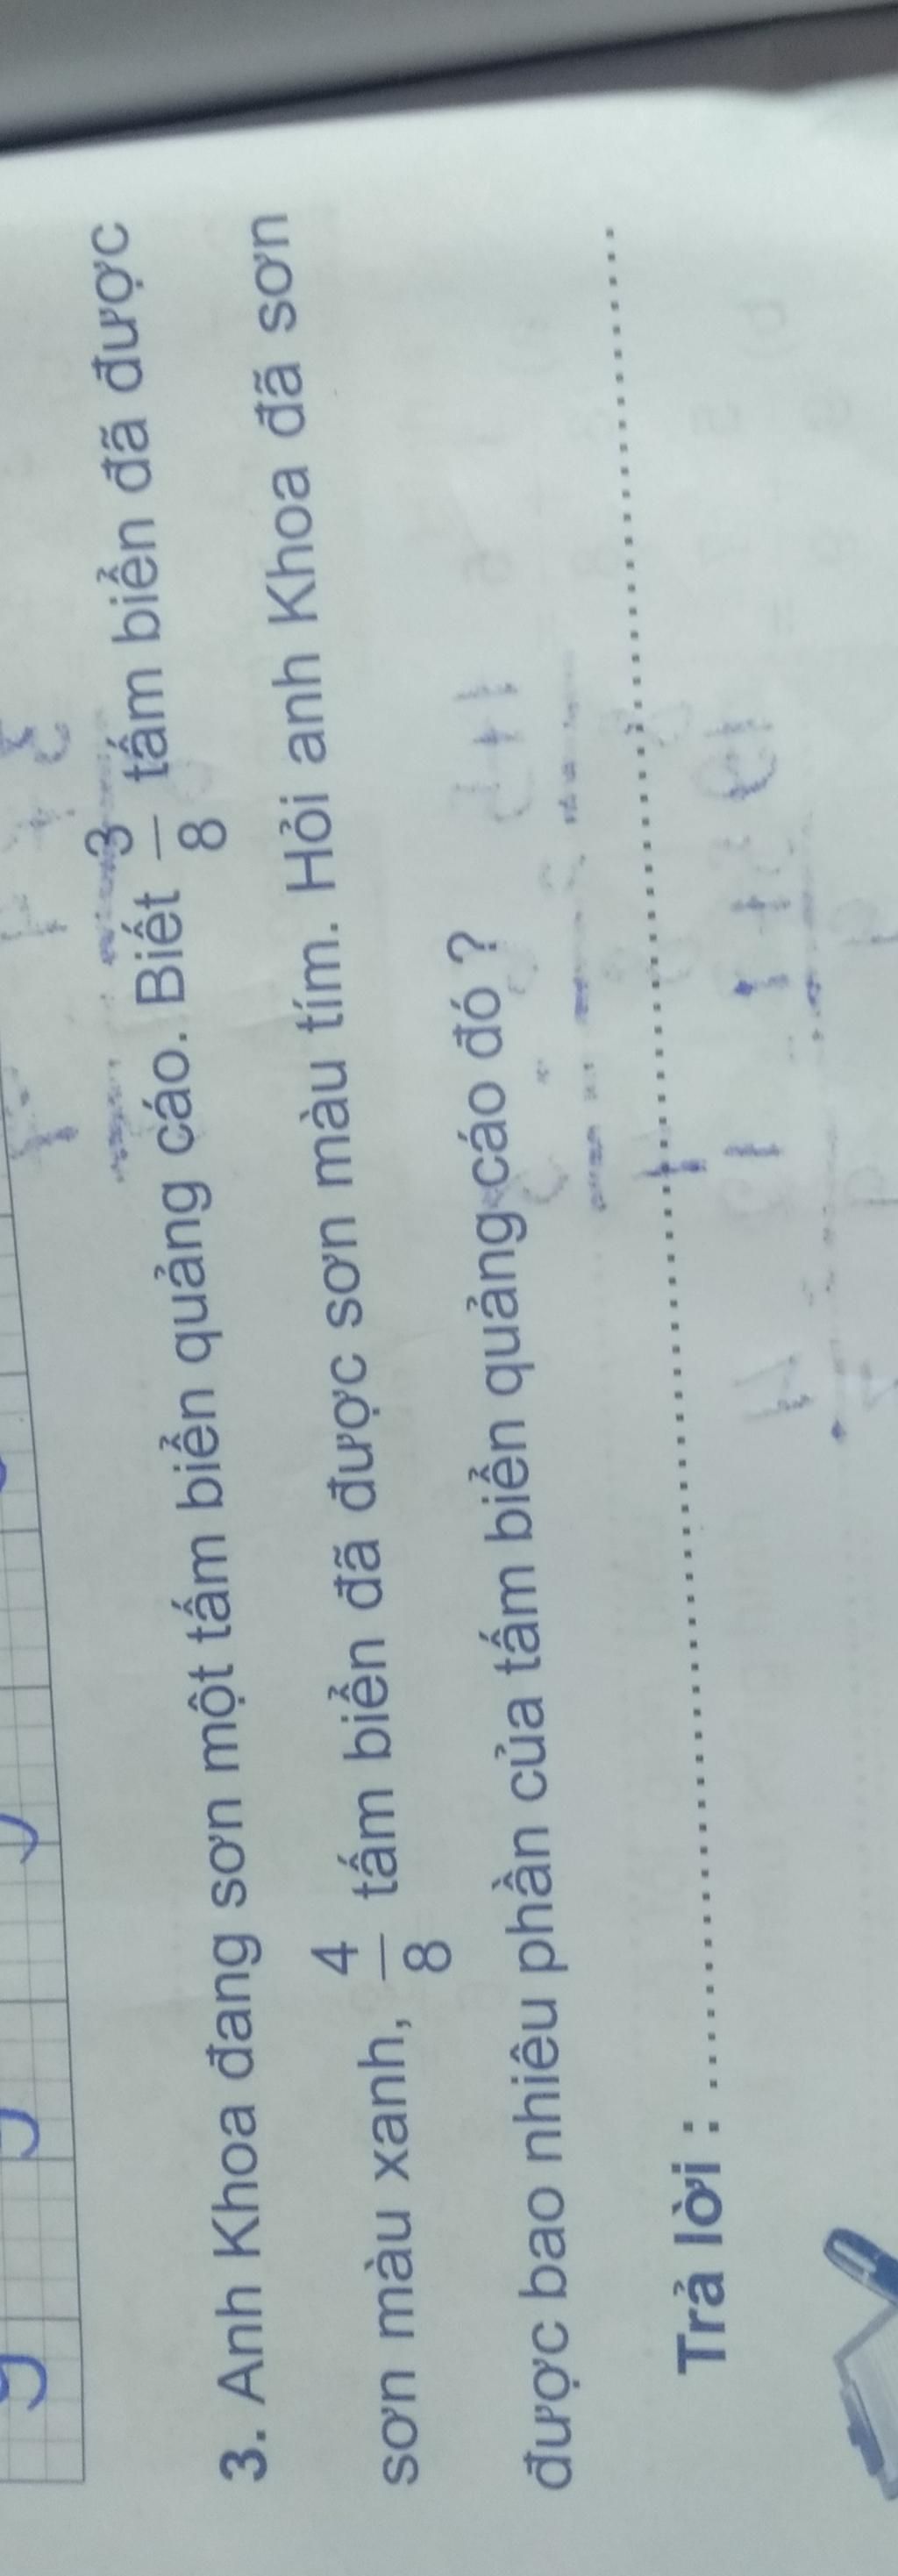 3. Anh Khoa đang sơn một tấm biển quảng cáo. Biết 3/8 tấm biển đã được
sơn màu xanh, 4/8 tấm biển đã được sơn màu tím. Hỏi anh Khoa đã sơn
được bao nhiêu phần của tấm biển quảng cáo đó ?
Trả lời : ........................................................................